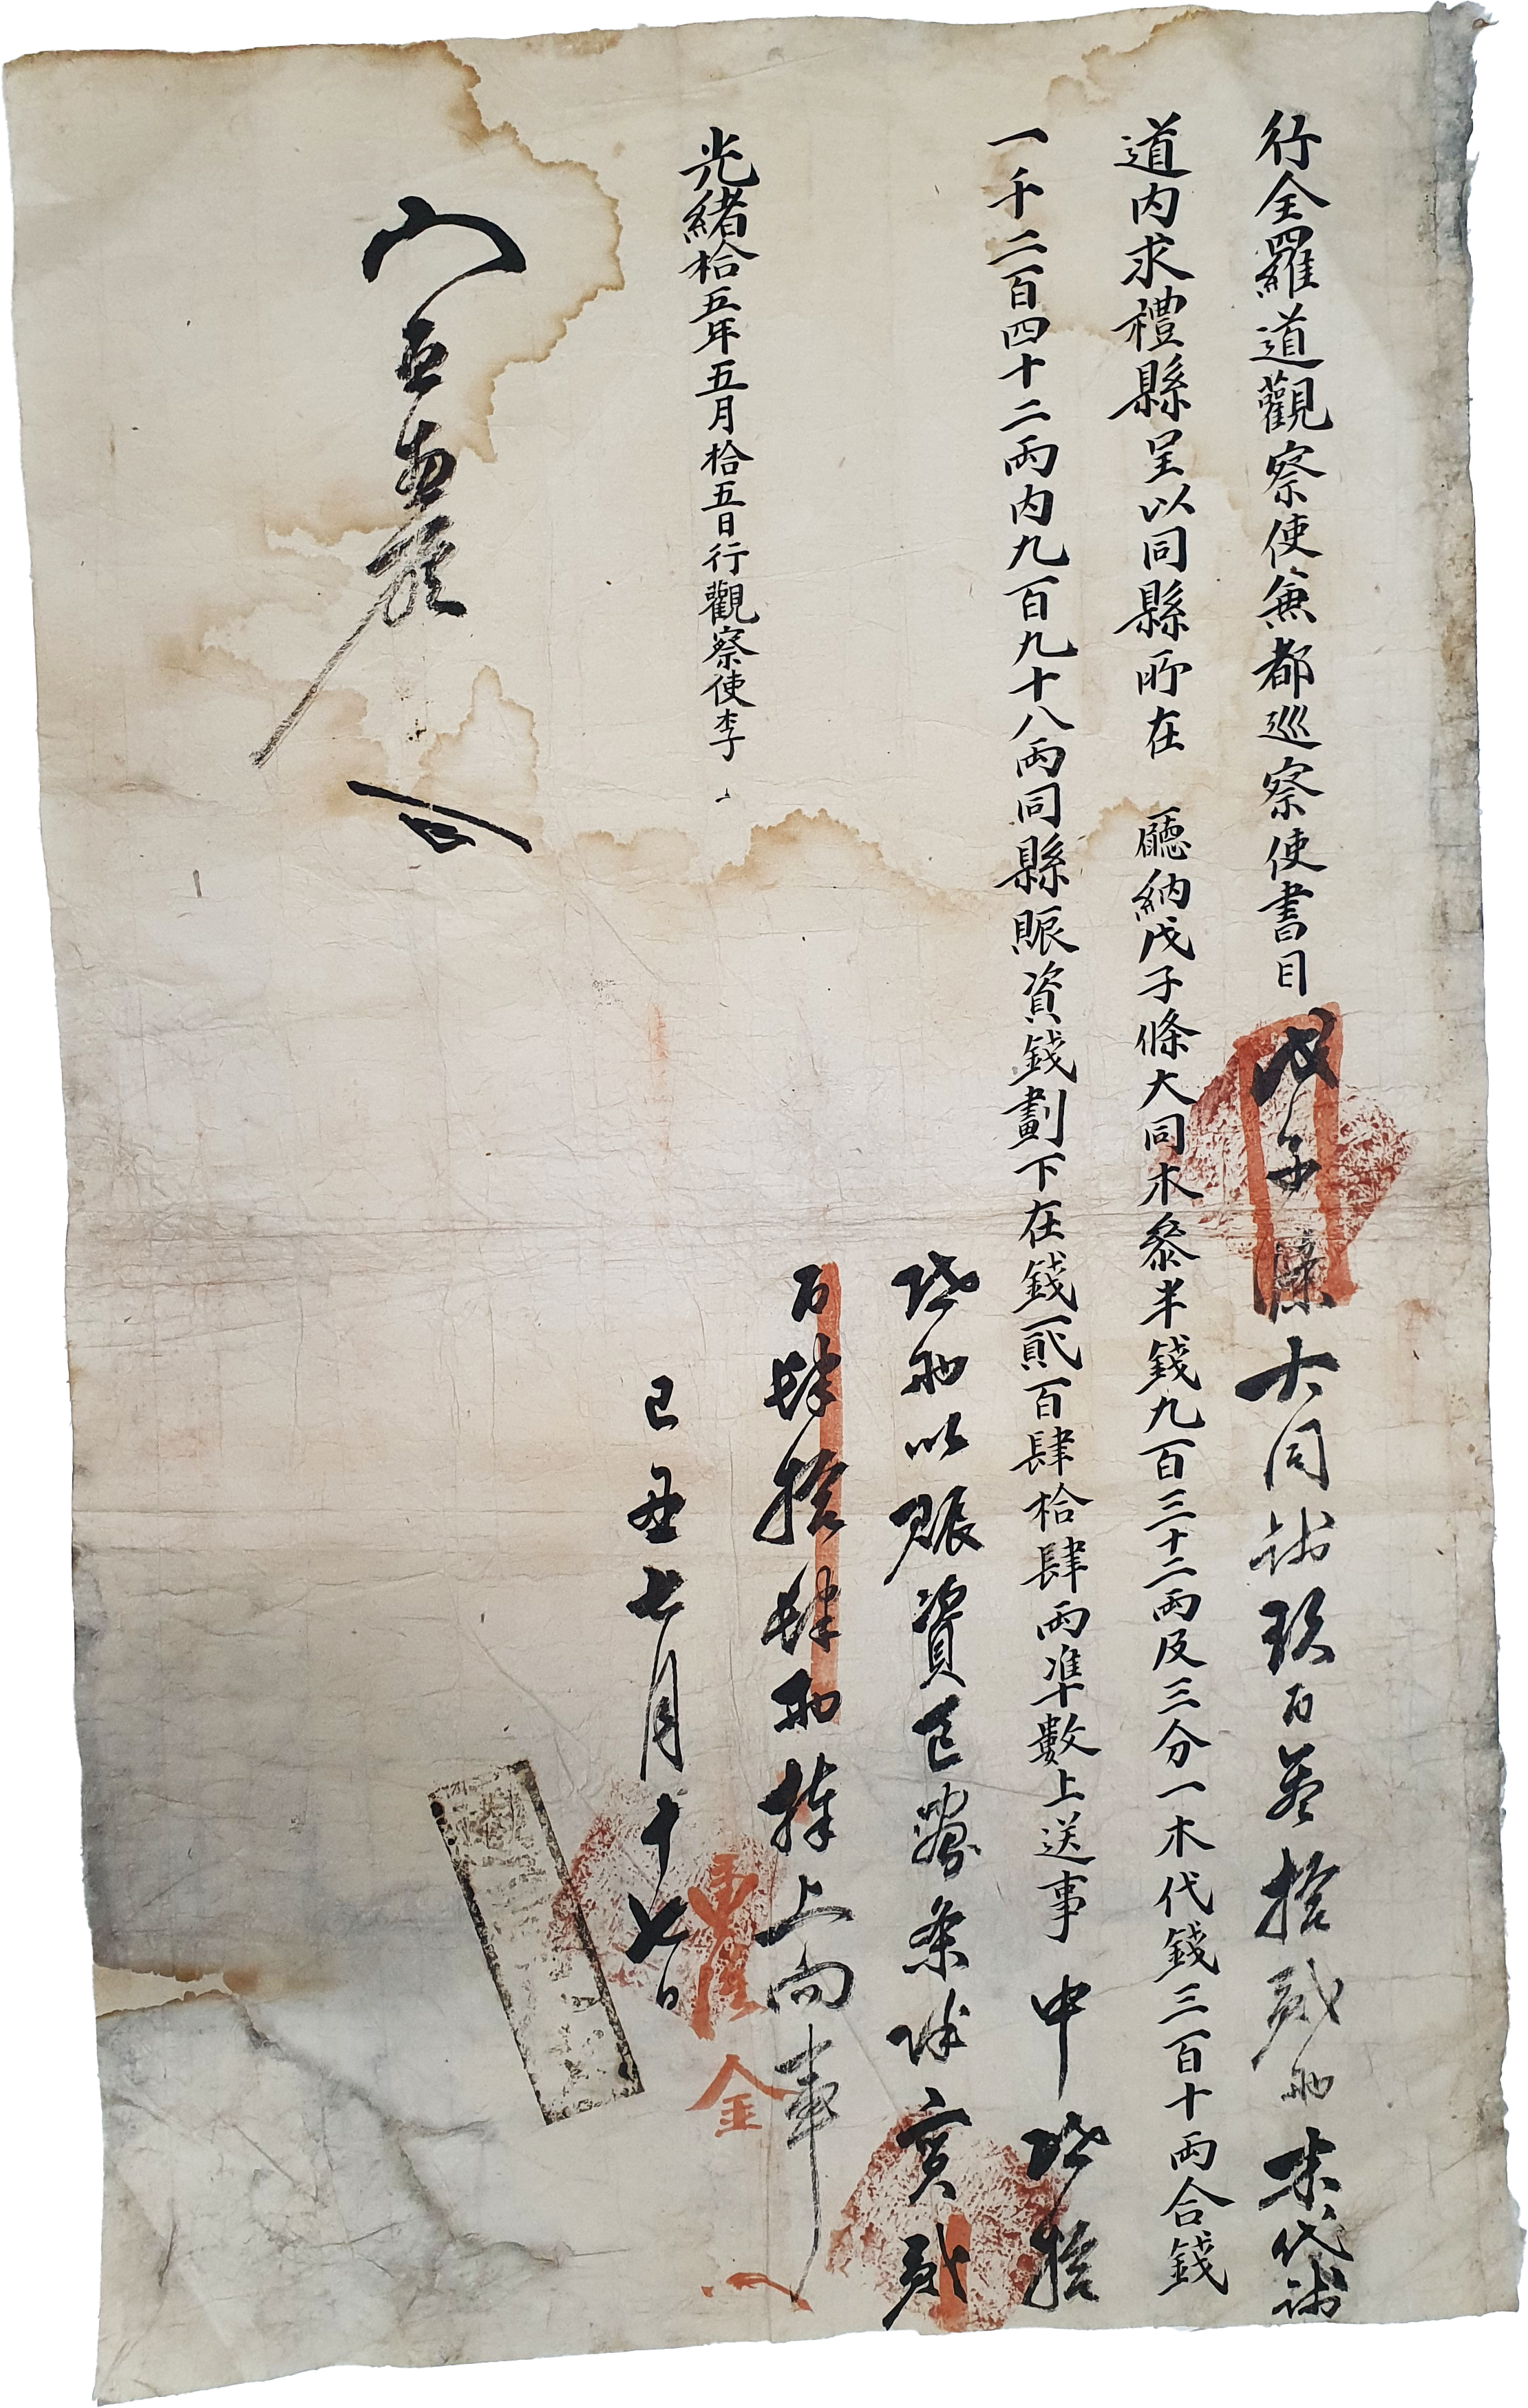 行全羅道觀察使兼都巡察使書目
道内求禮縣呈以同縣所在 廳納戊子條大同木參半錢九百三十二兩及三分一木代錢三百十兩合錢
一千二百四十二兩内九百九十八兩同縣賑資錢劃下在錢貳百肆拾肆兩準數上送事
光緖拾五年五月拾五日行觀察使李
戊子條大同錢玖百參拾貳兩木代錢
參百拾
兩以賑資已劃條除實貳
百肆拾肆兩捧上向事
己丑七月十七日